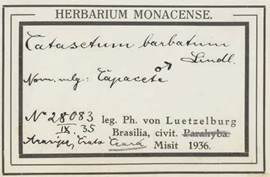 HERBARIUM MONACENSE.
Catasetum barbatum
Lindl.
Nom. vulg: Capacete ♂
Nº 28083 leg. Ph. von Luetzelburg
IX. 35 Brasilia, civit. Parahyba.
Araripe, Ceará Misit 1936.